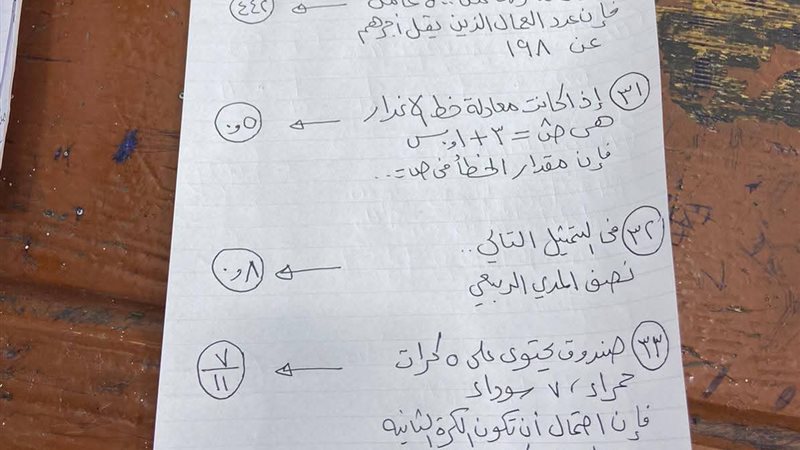 ٤٤٢
فإن عدد العمال الذين يقل أجرهم
عن ١٩٨
٣١ إذا كانت معادلة خط الانحدار
هى صَ = ٣ + ٠٫١ س ← ٠٫٥
فإن مقدار الخطأ فى ص = ..
٣٢ فى التمثيل التالي ..
نصف المدي الربيعي ← ٠٫٨
٣٣ صندوق يحتوى على ٥ كرات
حمراء ، ٧ سوداء ← ٧/١١
فإن احتمال أن تكون الكرة الثانيه